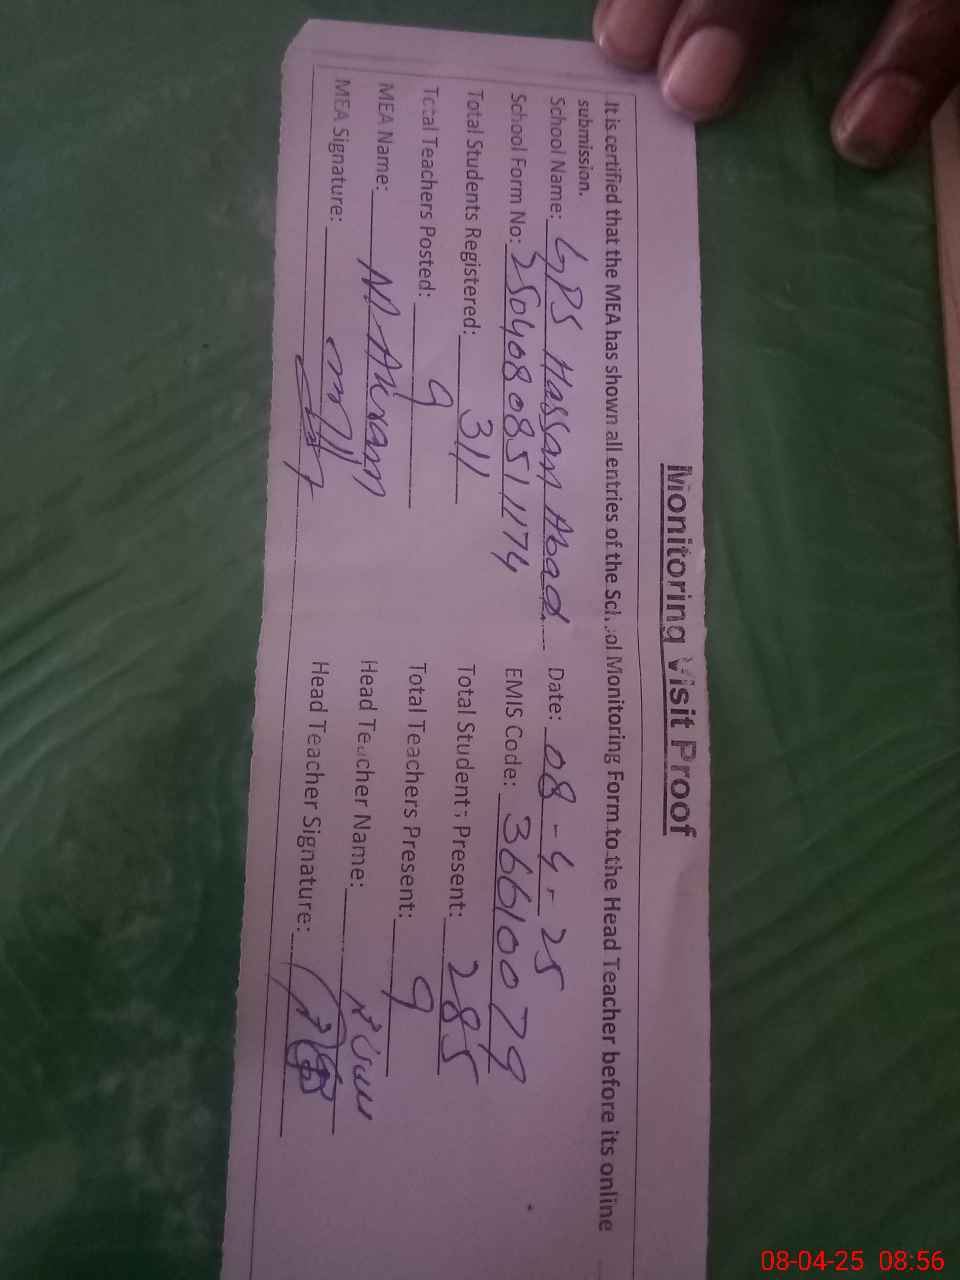 Monitoring Visit Proof
It is certified that the MEA has shown all entries of the School Monitoring Form to the Head Teacher before its online
submission.
School Name: GPS Hassan Abad Date: 08-4-25
School Form No: 25040808511174 EMIS Code: 36610079
Total Students Registered: 311 Total Students Present: 285
Total Teachers Posted: 9 Total Teachers Present: 9
MEA Name: M. Akram Head Teacher Name:
MEA Signature: Head Teacher Signature:
08-04-25 08:56